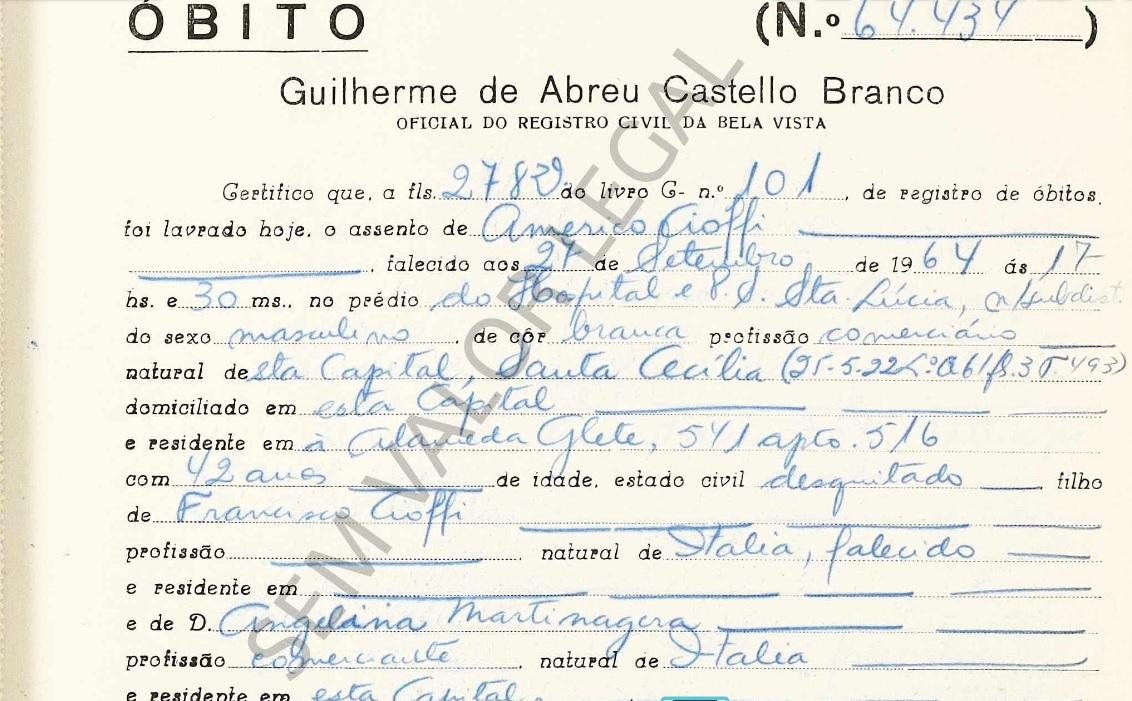 ÓBITO (N.º 64.434)
Guilherme de Abreu Castello Branco
OFICIAL DO REGISTRO CIVIL DA BELA VISTA
Certifico que, a fls. 278v do livro G- n.º 101, de registro de óbitos,
foi lavrado hoje, o assento de Americo Cioffi
, falecido aos 27 de Setembro de 1964 ás 17
hs. e 30 ms., no prédio do Hospital e P.S. Sta. Lúcia, n/subdist.
do sexo masculino, de côr branca profissão comerciário
natural desta Capital, Santa Cecília (25-5-22 L.º A61 fls.3 T. 493)
domiciliado em esta Capital
e residente em à Alameda Glete, 541 apto. 516
com 42 anos de idade, estado civil desquitado filho
de Francisco Cioffi
profissão natural de Italia, falecido
e residente em
e de D. Angelina Martinagera
profissão comerciante, natural de Italia
e residente em esta Capital.
SEM VALOR LEGAL